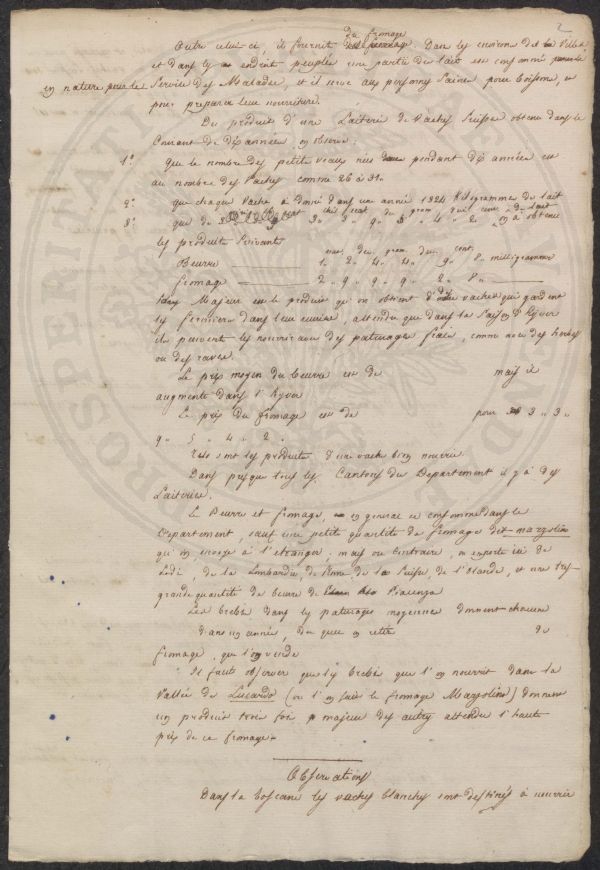 2
du fromage
Outre celui-ci, il fournit Dans les environs des Villes
et dans les endroit peuplés une partie du lait est consommé
en nature pour le Service des Malades, et il sert aux personnes Saines pour boisson, et
pour preparer leur nourriture.
Du produit d'une Laiterie de Vaches Suisses obtenu dans le
Courant de dix années on observe:
1°. que le nombre des petits veaux nés pendant dix années est
au nombre des Vaches comme 26 à 31.
2°. que chaque Vache à donné dans une année 1324 Kilogramme de lait
3°. que de 3 9 3 4 2 on à obtenu
les produits Suivants
gram. deci. cent.
Beurre 1 2 4 4 9 8 milligrammes
fromage 2 9 9 9 2 8
Majeur est le produit qu'on obtient des vaches qui gardent
les fermiers dans leur ecurie, attendu que dans la Saison d'hyver
ils peuvent les nourrir avec des paturages frais, comme avec des herbes
ou des raves.
Le prix moyen du beurre est de mais il
augmente dans l'hyver
Le prix du fromage est de pour 3 3
9 5 4 2
Tels sont les produits d'une vache bien nourrie
Dans presque tous les Cantons du Departement il y à des
Laiteries.
Le Beurre et fromage, en general se consomme dans le
Departement, sauf une petite quantité de fromage dit marzolin
qu'on envoye à l'etranger, mais au contraire, on exporte ici de
Lodi, de la Lombardie, de la Suisse, de l'Olande, et une tres
grande quantité de beurre de Piacenza
Les brebis dans les paturages moyennes donnent chacune
dans une année, du que on retire de
fromage, que l'on vende
Il faut observer que les brebis que l'on nourrit dans la
Vallée de Lucardo (ou l'on fait le fromage Marzolin) donnent
un produit trois fois majeur des autres attendu l'haut
prix de ce fromage.
Observations
Dans la Toscane les vaches blanches sont destinés à nourrir